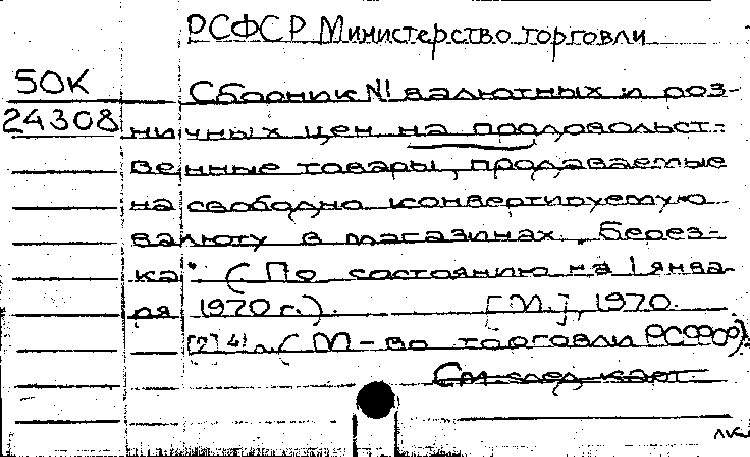 РСФСР Министерство торговли
50К
24308
Сборник №1 валютных и роз-
ничных цен на продовольст-
венные товары, продаваемые
на свободно конвертируемую
валюту в магазинах „Берез-
ка“ (По состоянию на 1 янва-
ря 1970 г.). [М.], 1970.
[2] 41 л. (М-во торговли РСФСР).
См. след. карт.